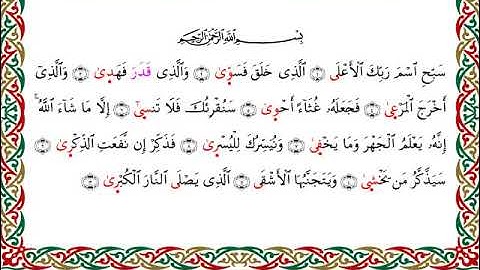 بِسْمِ ٱللَّهِ ٱلرَّحْمَٰنِ ٱلرَّحِيمِ
سَبِّحِ ٱسْمَ رَبِّكَ ٱلْأَعْلَى ۝١ ٱلَّذِى خَلَقَ فَسَوَّىٰ ۝٢ وَٱلَّذِى قَدَرَ فَهَدَىٰ ۝٣ وَٱلَّذِىٓ
أَخْرَجَ ٱلْمَرْعَىٰ ۝٤ فَجَعَلَهُۥ غُثَآءً أَحْوَىٰ ۝٥ سَنُقْرِئُكَ فَلَا تَنسَىٰٓ ۝٦ إِلَّا مَا شَآءَ ٱللَّهُ ۚ
إِنَّهُۥ يَعْلَمُ ٱلْجَهْرَ وَمَا يَخْفَىٰ ۝٧ وَنُيَسِّرُكَ لِلْيُسْرَىٰ ۝٨ فَذَكِّرْ إِن نَّفَعَتِ ٱلذِّكْرَىٰ ۝٩
سَيَذَّكَّرُ مَن يَخْشَىٰ ۝١٠ وَيَتَجَنَّبُهَا ٱلْأَشْقَى ۝١١ ٱلَّذِى يَصْلَى ٱلنَّارَ ٱلْكُبْرَىٰ ۝١٢